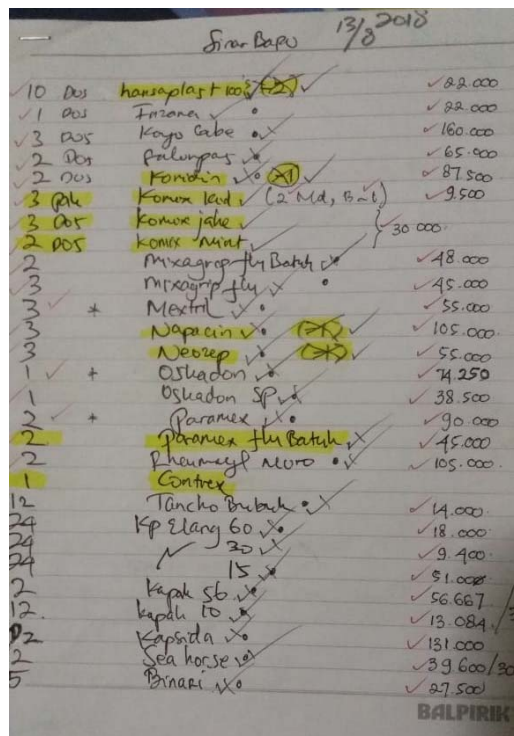 Sinar Bapu 13/8 2018
10 Dos hansaplast 100's (-2) 22.000
1 Dos Inzana 22.000
3 Dos Koyo Cabe 160.000
2 Dos Salonpas 65.000
2 Dos Konidin (-1) 87.500
3 pak Komix kid (2 Md, B-1) 9.500
3 Dos Komix jahe
30 000
2 Dos Komix Mint
2 Mixagrip flu Batuk 48.000
3 Mixagrip flu 45.000
3 * Mextril 55.000
3 Napacin 105.000
3 Neozep 55.000
1 + Oskadon 74.250
1 Oskadon SP 38.500
2 + Paramex 90.000
2 Paramex flu Batuk 45.000
2 Rheumacyl Neuro 105.000.
1 Contrex
12 Tancho Bubuk 14.000
24 Kp Elang 60 18.000
24 30 9.400
24 15 51.000
2 Kapak 56 56.667
12. kapak 10 13.084
Kapsida 131.000
2 Sea horse 39.600/30
5 Binari 27.500
BALPIRIK